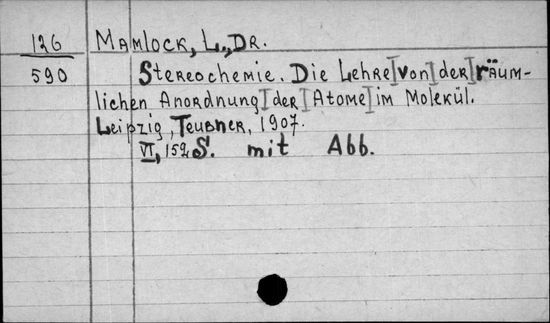 126
590
Mamlock, L., Dr.
Stereochemie. Die Lehre von der räum-
lichen Anordnung der Atome im Molekül.
Leipzig, Teubner, 1907.
VI, 152 S. mit Abb.